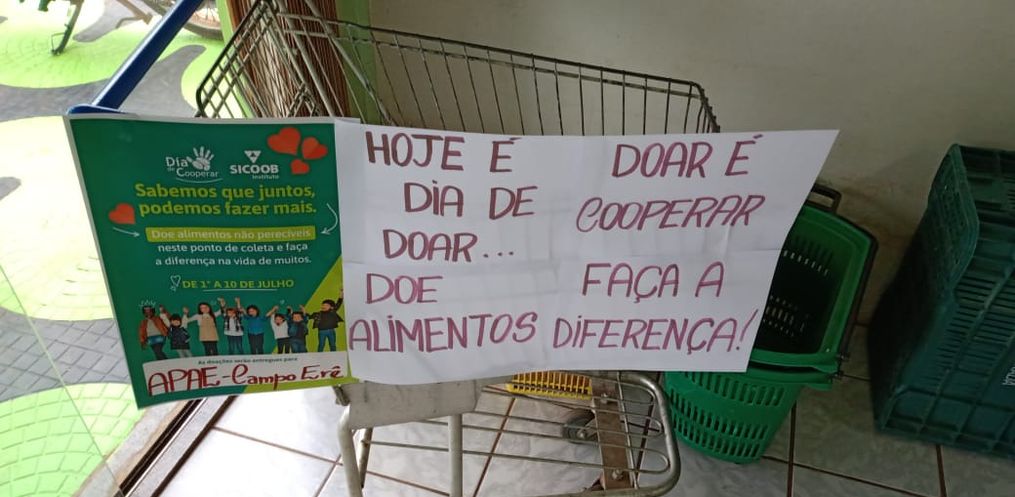 Dia
de Cooperar
SICOOB
Instituto
Sabemos que juntos,
podemos fazer mais.
Doe alimentos não perecíveis
neste ponto de coleta e faça
a diferença na vida de muitos.
DE 1º A 10 DE JULHO
As doações serão entregues para
APAE-Campo Erê
HOJE É
DIA DE
DOAR...
DOE
ALIMENTOS
DOAR É
COOPERAR
FAÇA A
DIFERENÇA!